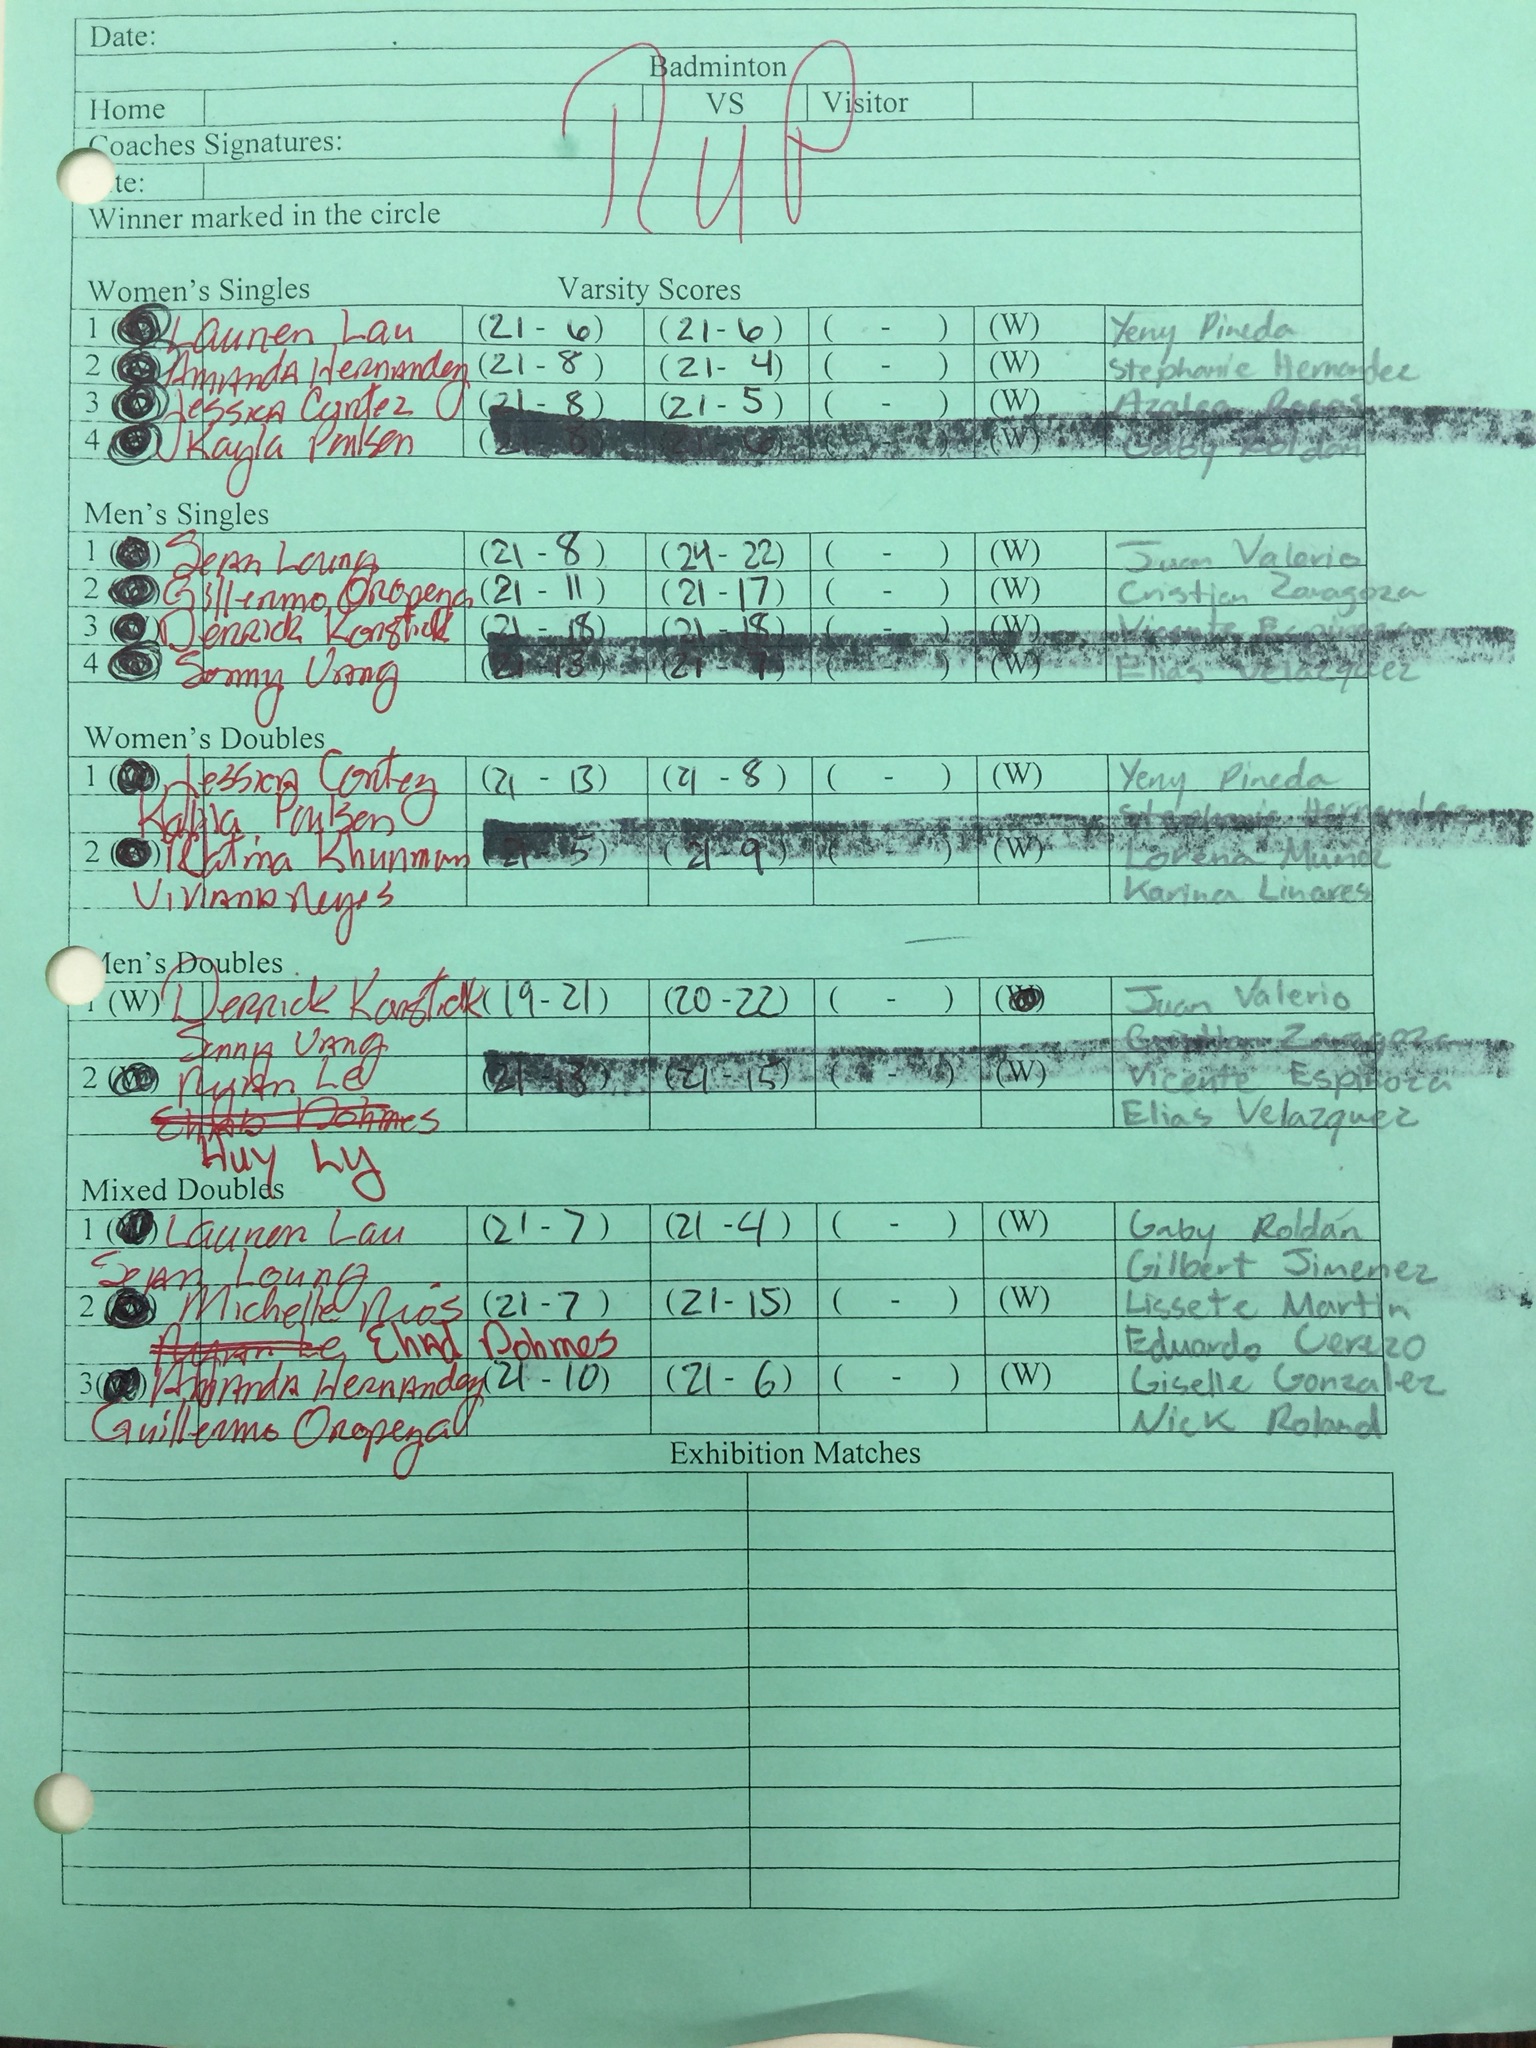 Date:
Badminton
Home VS Visitor
Coaches Signatures:
te:
Winner marked in the circle
Women's Singles Varsity Scores
1 Lauren Lau (21 - 6) (21 - 6) ( - ) (W) Yeny Pineda
2 Amanda Hernandez (21 - 8) (21 - 4) ( - ) (W) Stephanie Hernandez
3 Jessica Cortez (21 - 8) (21 - 5) ( - ) (W) Azalea Rosas
4 Kayla Poulsen ( - ) (W) Gaby Roldan
Men's Singles
1 Sean Loung (21 - 8) (24 - 22) ( - ) (W) Juan Valerio
2 Guillermo Oropeza (21 - 11) (21 - 17) ( - ) (W) Cristian Zaragoza
3 Derrick Kongtick (21 - 18) (21 - 18) ( - ) (W) Vicente Espinoza
4 Sonny Vang (21 - 13) (21 - 7) ( - ) (W) Elias Velazquez
Women's Doubles
1 Jessica Cortez (21 - 13) (21 - 8) ( - ) (W) Yeny Pineda
Kayla Poulsen Stephanie Hernandez
2 Katina Khunman (21 - 5) (21 - 9) ( - ) (W) Lorena Munoz
Viviana Reyes Karina Linares
Men's Doubles
1 (W) Derrick Kongtick (19 - 21) (20 - 22) ( - ) Juan Valerio
Sonny Vang Cristian Zaragoza
2 (W) Ryan Le (21 - 13) (21 - 15) ( - ) (W) Vicente Espinoza
Ehab Dohmes Elias Velazquez
Huy Ly
Mixed Doubles
1 Lauren Lau (21 - 7) (21 - 4) ( - ) (W) Gaby Roldán
Sean Loung Gilbert Jimenez
2 Michelle Rios (21 - 7) (21 - 15) ( - ) (W) Lissete Martin
Ryan Le Ehab Dohmes Eduardo Cerezo
3 Amanda Hernandez (21 - 10) (21 - 6) ( - ) (W) Giselle Gonzalez
Guillermo Oropeza Nick Roland
Exhibition Matches